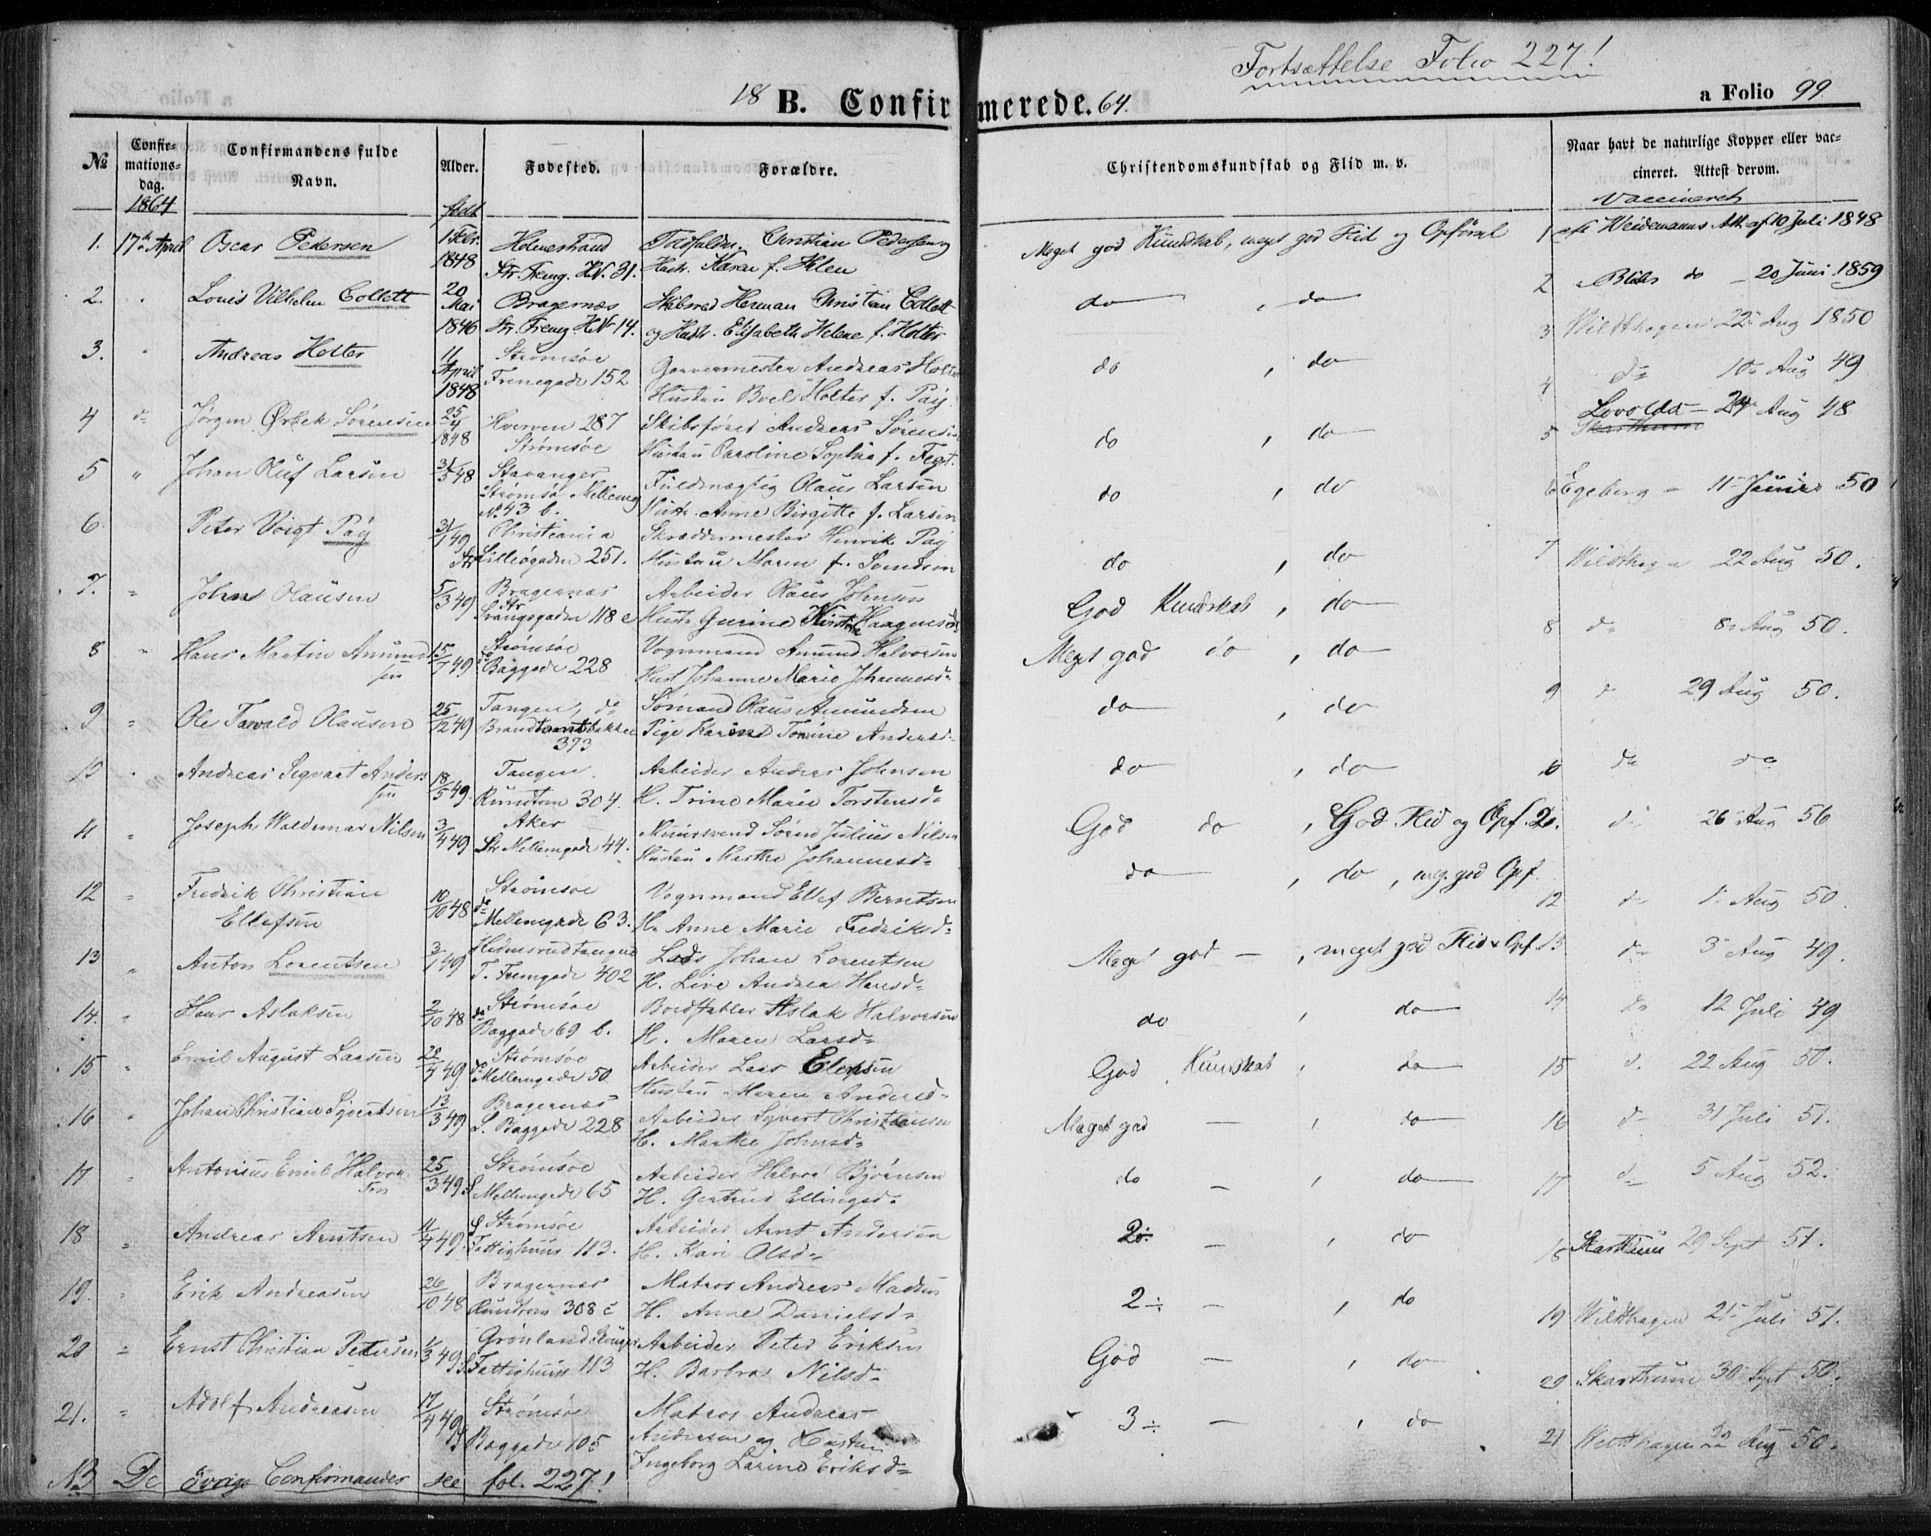 Fortsættelse Folio 227!
18 B. Confirmerede. 64.
a Folio 99
№ Confirmations-dag. Confirmandens fulde Navn. Alder. Fødested. Forældre. Christendomskundskab og Flid m. v. Naar havt de naturlige Kopper eller vaccineret. Attest derom.
1864 født Vaccineret
1. 17de April Oscar Pedersen 1 Febr. 1848 Holmestrand Str. Fremg. H.N. 31. Toldfuldm. Christian Pedersen og Hustr. Karen f. Holen Meget god Kundskab, meget god Flid og Opførsel 1 Weidemanns Att. af 10 Juli 1848
2. Louis Vilhelm Collett 20 Mai 1846 Bragernæs Str. Fremg. H.N. 14. Skibsred Herman Christian Collett og Hustr. Elisabeth Helene f. Holter do, do 2 do 20 Juni 1859
3. Andreas Holter 11 April 1848 Strømsøe Fremegade 152 Garvermester Andreas Holter Hustru Boel Holter f. Paÿ do, do 3 Wildthagen 22 Aug 1850
4 Jørgen Ørbek Sörensen 25/4 1848 Hverven 287 Strømsøe Skibsfører Andreas Sörensen Hustru Caroline Sophia f. do, do 4 do 10 Aug 49
5 " Johan Oluf Larsen 31/5 48 Stavanger Strømsø Melleng № 43 b. Fuldmægtig Olaus Larsen Hustr. Anne Birgitte f. Larsen do, do 5 Lovolda 24 Aug 48
6. Peter Voigt Paÿ 31/1 49 Christiania Str Lilleøgaden 251. Skræddermester Henrik Paÿ Hustru Maren f. do, do Egeberg 11 50
7. " Johns Olausen 5/3 49 Bragernæs 118 c Arbeider Olaus Johnsen Hustr. Gurine Kirstine God Kundskab, do 7 Wildthagen 22 Aug 50.
8 " Hans Martin Amundsen 15/7 49 Strømsøe Baggade 228 Vognmand Amund Halvorsen Hust Johanne Marie Johannesd. Meget god do, do 8 do 8 Aug 50.
9 " Ole Torvald Olausen 25/12 49 Tangen, do 393 Sømand Olaus Amundsen Pige Karine Tomine Andersd. do, do 9 do 29 Aug 50.
10 Andreas Sigvart Andersen 18/5 49 Tangen Rundtom 304. Arbeider Anders Johnsen H. Trine Marie Torstensd. do, do do do
11 " Joseph Waldemar Nilsen 3/4 49 Aker Str Mellemgade 44. Murersvend Sørn Julius Nilsen Hustru Marthe Johannesd. God do, God Flid og Opf. do 26 Aug 56
12 " Fredrik Christian Ellefsen 10/10 48 Strømsøe do Mellemgade 63. Vognmand Ellef Berntsen H. Anne Marie Fredriksd. do, do, meg. god Opf. 12 do 1 Aug 50.
13 " Anton Lorentsen 3/1 49 T. Fremgade 402 Lods Johan Lorentsen H. Live Andrea Hansd. Meget god —, meget god Flid & Opf. 13 do 3 Aug 49.
14. " Hans Aslaksen 2/10 48 Strømsøe do Baggade 69 b. Bordstabler Aslak Halvorsen H. Maren Larsd. do, do 14 do 12 Juli 49
15 " Emil August Larsen 20/4 49 Strømsøe do Mellemgade 50 Arbeider Lars Elefsen Hustru Maren Andersd. God Kundskab, do 15 do 22 Aug 50.
16 " Johan Christian Syvertsen 13/3 49 Bragernæs S. Baggade 228 Arbeider Syvert Christiansen H. Marthe Johnsd. Meget god —, do 16 do 31 Juli 51.
17 " Antonius Emil Halvorsen 25/3 49 Strømsøe S Mellemgade 65 Arbeider Halvor Bjørnsen H. Gertrud Ellingsd. do —, do 17 do 5 Aug 52.
18 " Andreas Arntsen 11/4 49 Strømsøe S Fattighuus 113. Arbeider Arnt Andersen H. Kari Olsd. 2÷ —, do 18 Skarthum 29 Sept 51.
19. " Erik Andreasen 26/10 48 Bragernæs Rundtom 308 c Matros Andreas Madsen H. Anne Danielsd. 2÷ —, do 19 Wildthagen 21 Juli 51.
20 " Ernst Christian Petersen 1/3 49 Grønland Fattighuus 113 Arbeider Peter Eriksen H. Barbra Nilsd. God —, do 20 Skarthum 30 Sept 50.
21. " Adolf Andreasen 17/4 49 Strømsøe Baggade 105 Matros Andreas Andresen og Hustru Ingeborg Larine Eriksd. 3÷ —, do 21 Wildthagen 22 Aug 50.
NB De øvrige Confirmander see fol. 227!